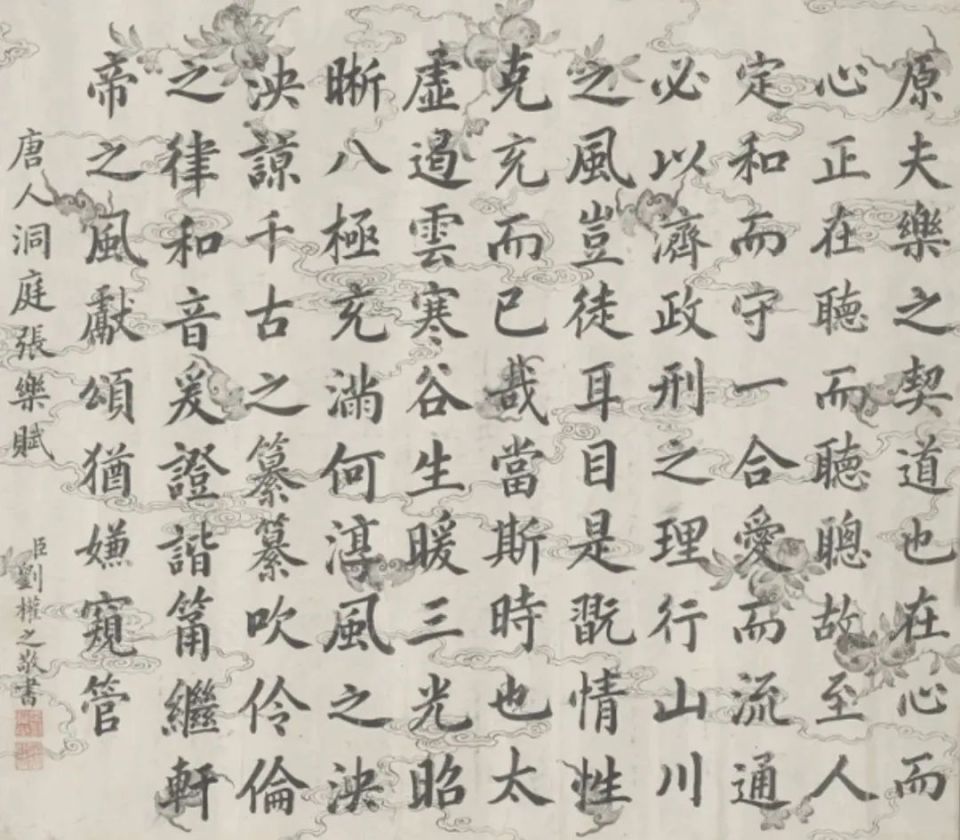 原夫樂之契道也在心而
心正在聽而聽聰故至人
定和而守一合愛而流通
必以濟政刑之理行山川
之風豈徒耳目是翫情性
克充而已哉當斯時也太
虛遏雲寒谷生暖三光昭
晣八極充滿何淳風之泱
泱諒千古之纂纂吹伶倫
之律和音爰證諧筩繼軒
帝之風獻頌猶嫌窺管
唐人洞庭張樂賦
臣劉權之敬書